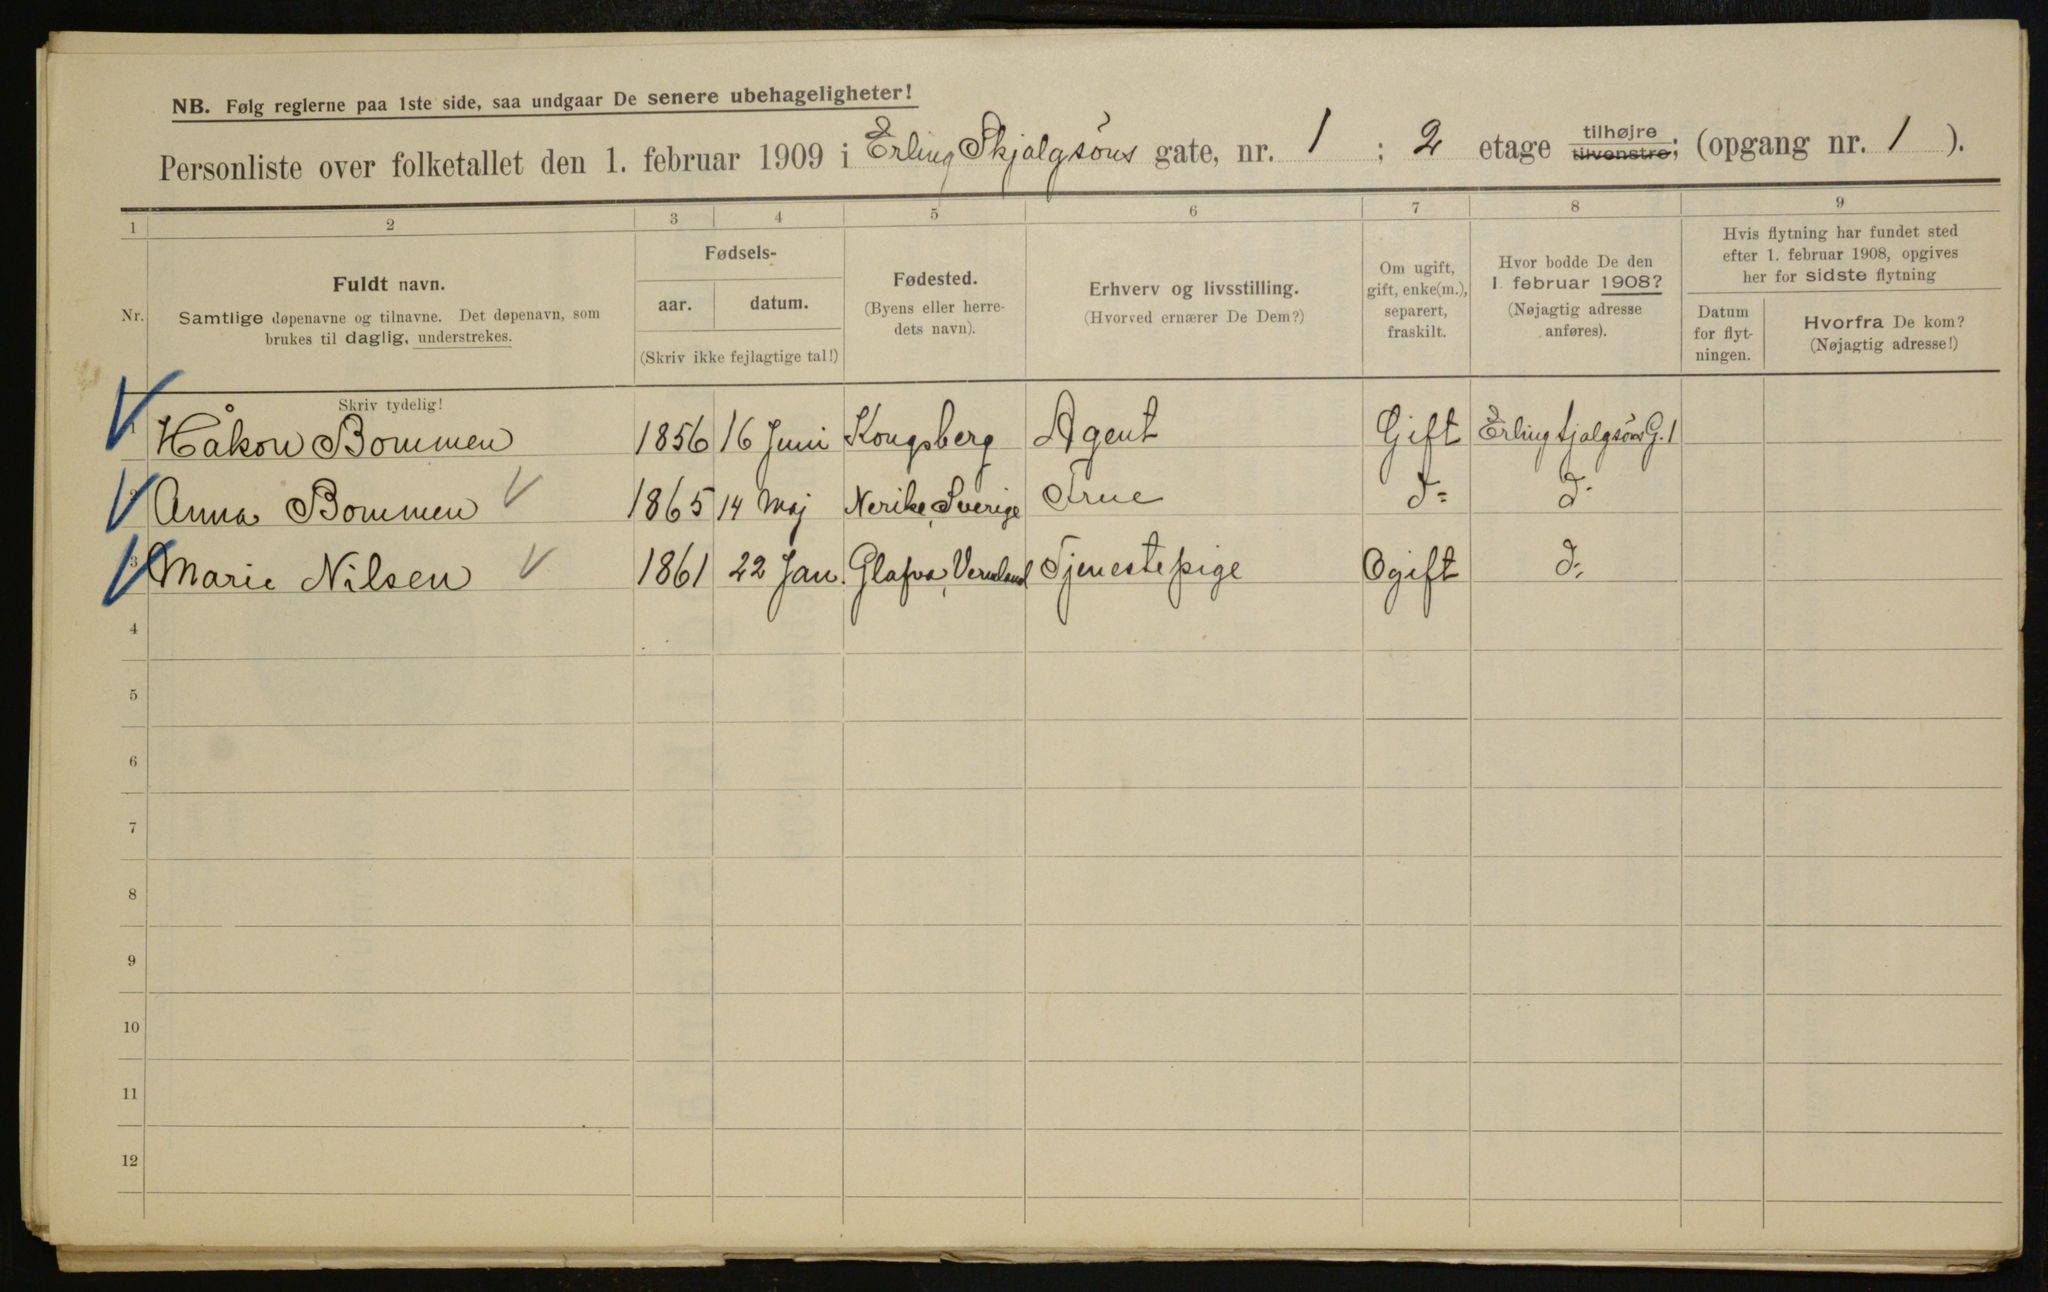 NB. Følg reglerne paa 1ste side, saa undgaar De senere ubehageligheter!
Personliste over folketallet den 1. februar 1909 i Erling Skjalgsöns gate, nr. 1 ; 2 etage tilhøjre tilvenstre; (opgang nr. 1 ).
1 2 3 4 5 6 7 8 9
Nr.
Fuldt navn.
Samtlige døpenavne og tilnavne. Det døpenavn, som
brukes til daglig, understrekes.
Fødsels-
aar. datum.
(Skriv ikke fejlagtige tal!)
Fødested.
(Byens eller herre-
dets navn).
Erhverv og livsstilling.
(Hvorved ernærer De Dem?)
Om ugift,
gift, enke(m.),
separert,
fraskilt.
Hvor bodde De den
1. februar 1908?
(Nøjagtig adresse
anføres).
Hvis flytning har fundet sted
efter 1. februar 1908, opgives
her for sidste flytning
Datum
for flyt-
ningen.
Hvorfra De kom?
(Nøjagtig adresse!)
Skriv tydelig!
1 Håkon Bommen 1856 16 Juni Kongsberg Agent Gift Erling Sjalgsöns G. 1
2 Anna Bommen 1865 14 Maj Nerike, Sverige Frue d= d-
3 Marie Nilsen 1861 22 Jan. Glafva, Vermland Tjenestepige Ogift d-
4
5
6
7
8
9
10
11
12